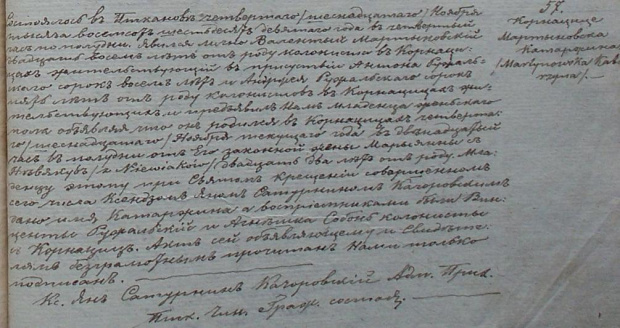 Состоялось въ Пткановѣ четвертаго /шеснадцатаго/ Ноября
тысяча восемсотъ шестьдесятъ девятаго года въ четвертый
часъ по полудни. Явился лично Валентый Мартыновскій
двадцать восемь лѣтъ отъ роду колонистъ въ Корнаци-
цахъ жительствующій въ присутствіи Антона
сорокъ восемь лѣтъ и Андрея сорокъ
лѣтъ отъ роду колонистовъ въ Корнацицахъ жи-
тельствующихъ и предъявилъ Намъ младенца женскаго
пола объявляя что онъ родился въ Корнацицахъ четверта-
го /шеснадцатаго/ Ноября текущаго года въ двѣнадцатый
часъ въ полудни отъ его законной жены Марьянны съ
двадцать два лѣтъ отъ роду. Мла-
денцу этому при Святомъ крещеніи совершенномъ
сего числа Ксендзомъ Яномъ Сатурниномъ Качоровскимъ
дано имя Катаржина а воспріемниками были Вин-
центы и Агнѣшка колонисты
съ Корнацицъ. Актъ сей объявляющему и Свидѣте-
лямъ безграмотнымъ прочитанъ Нами только
подписанъ.
Кс. Янъ Сатурнинъ Качоровскій Адм. Прих.
Птк. Чин. Граж. состоя.
57.
Корнацице
Мартыновска
Катаржина
/Martynowska Kata-
rzyna/